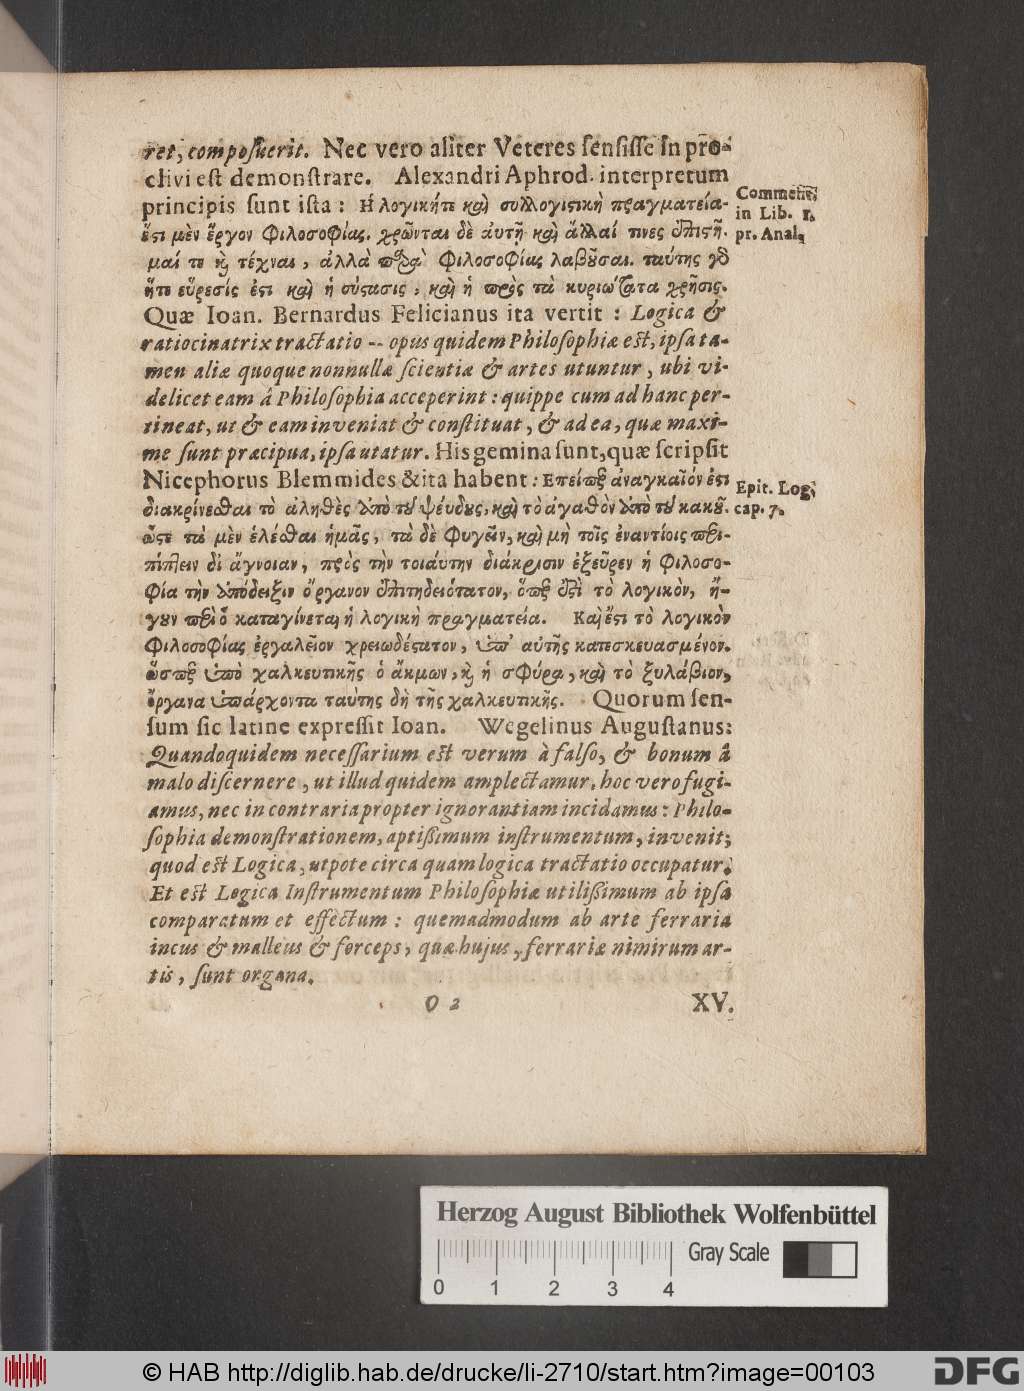 ret, composuerit. Nec vero aliter Veteres sensisse in pro-
clivi est demonstrare. Alexandri Aphrod. interpretum
principis sunt ista: Η λογικήτε καὶ συλλογιστικὴ πραγματεία-
ἔστι μὲν ἔργον Φιλοσοφίας. χρῶνται δὲ ἀυτῇ καὶ ἄλλαί τινες ἐπιστῆ-
μαί τε καὶ τέχναι, ἀλλὰ παρὰ Φιλοσοφίας λαβοῦσαι. ταύτης γὸ
ἥτε εὕρεσίς ἐστι καὶ ἡ σύστασις, καὶ ἡ πρὸς τὰ κυριώτατα χρῆσις.
Quæ Ioan. Bernardus Felicianus ita vertit: Logica &
ratiocinatrix tractatio -- opus quidem Philosophiæ est, ipsa ta-
men aliæ quoque nonnullæ scientiæ & artes utuntur, ubi vi-
delicet eam á Philosophia acceperint: quippe cum ad hanc per-
tineat, ut & eam inveniat & constituat, & ad ea, quæ maxi-
me sunt præcipua, ipsa utatur. His gemina sunt, quæ scripsit
Nicephorus Blemmides & ita habent: Επείπερ ἀναγκαῖόν ἐστι
διακρίνεσθαι τὸ ἀληθὲς ἀπὸ τοῦ ψέυδους, καὶ τὸ ἀγαθὸν ἀπὸ τοῦ κακοῦ.
ὥστε τὰ μὲν ἑλέσθαι ἡμᾶς, τὰ δὲ φυγεῖν, καὶ μὴ τοῖς ἐναντίοις περι-
πίπτειν δι ἄγνοιαν, πρὸς τὴν τοιάυτην διάκρισιν ἐξεῦρεν ἡ Φιλοσο-
φία τὴν ἀπόδειξιν ὄργανον ἐπιτηδειότατον, ὅπερ ἐστὶ τὸ λογικὸν, ἤ-
γουν περὶ ὃ καταγίνεται ἡ λογικὴ πραγματεία. Καὶ ἔστι τὸ λογικὸν
Φιλοσοφίας ἐργαλεῖον χρειωδέστατον, ὑπ' αὐτῆς κατεσκευασμένον.
ὥσπερ ὑπὸ χαλκευτικῆς ὁ ἄκμων, καὶ ἡ σφύρα, καὶ τὸ ξυλάβιον,
ὄργανα ὑπάρχοντα ταύτης δὴ τῆς χαλκευτικῆς. Quorum sen-
sum sic latine expressit Ioan. Wegelinus Augustanus:
Quandoquidem necessarium est verum à falso, & bonum â
malo discernere, ut illud quidem amplectamur, hoc vero fugi-
amus, nec in contraria propter ignorantiam incidamus: Philo-
sophia demonstrationem, aptißimum instrumentum, invenit;
quod est Logica, utpote circa quam logica tractatio occupatur.
Et est Logica Instrumentum Philosophiæ utilißimum ab ipsa
comparatum et effectum: quemadmodum ab arte ferraria
incus & malleus & forceps, quæ hujus, ferrariæ nimirum ar-
tis, sunt organa.
O 2 XV.
Comment.
in Lib. 1.
pr. Anal.
Epit. Log.
cap. 7.
Herzog August Bibliothek Wolfenbüttel
Gray Scale
0 1 2 3 4
© HAB http://diglib.hab.de/drucke/li-2710/start.htm?image=00103
DFG